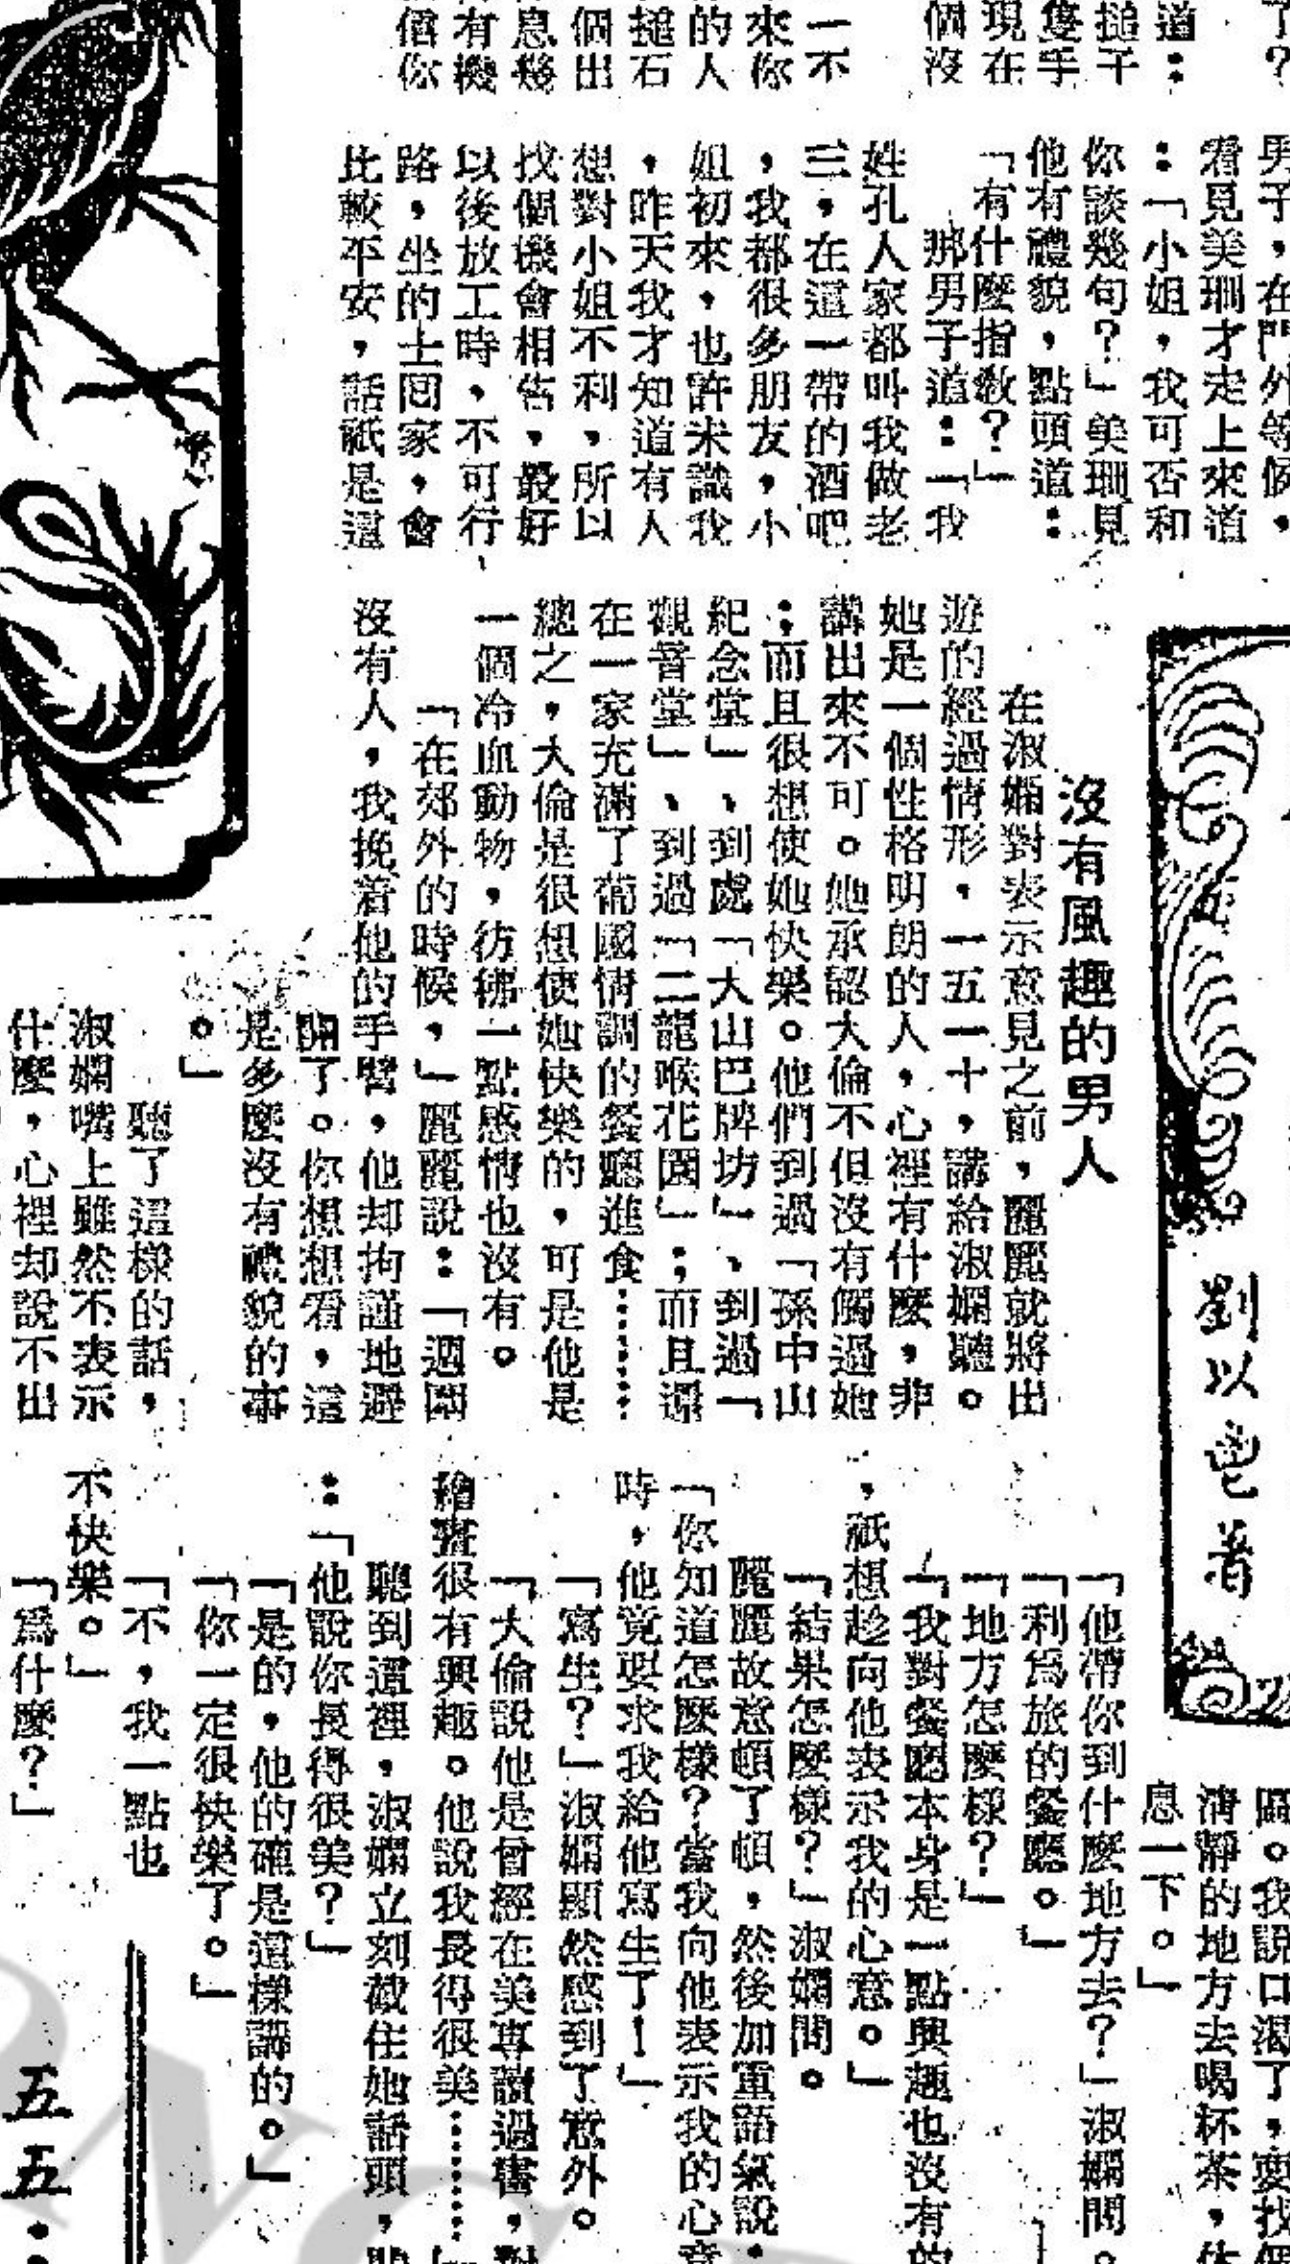 了？
道：
搥子
隻手
現在
個沒
一不
來你
的人
搥石
個出
息幾
有機
信你
男子，在門外等候，
看見美珊才走上來道
：「小姐，我可否和
你談幾句？」美珊見
他有禮貌，點頭道：
「有什麼指敎？」
那男子道：「我
姓孔人家都叫我做老
三，在這一帶的酒吧
，我都很多朋友，小
姐初來，也許未識我
，昨天我才知道有人
想對小姐不利，所以
找個機會相告，最好
以後放工時，不可行
路，坐的士囘家，會
比較平安，話祇是這
劉以鬯著
沒有風趣的男人
在淑嫻對表示意見之前，麗麗就將出
遊的經過情形，一五一十，講給淑嫻聽。
她是一個性格明朗的人，心裡有什麼，非
講出來不可。她承認大倫不但沒有觸過她
；而且很想使她快樂。他們到過「孫中山
紀念堂」、到處「大山巴牌坊」、到過「
觀音堂」、到過「二龍喉花園」；而且還
在一家充滿了葡國情調的餐廳進食……
總之，大倫是很想使她快樂的，可是他是
一個冷血動物，彷彿一點感情也沒有。
「在郊外的時候，」麗麗說：「週圍
沒有人，我挽着他的手臂，他却拘謹地避
開了。你想想看，這
是多麼沒有禮貌的事
。」
聽了這樣的話，
淑嫻嘴上雖然不表示
什麼，心裡却說不出
圖。我說口渴了，要找個
淸靜的地方去喝杯茶，休
息一下。」
「他帶你到什麼地方去？」淑嫻問。
「利爲旅的餐廳。」
「地方怎麼樣？」
「我對餐廳本身是一點興趣也沒有的
，祇想趁向他表示我的心意。」
「結果怎麼樣？」淑嫻問。
麗麗故意頓了頓，然後加重語氣說：
「你知道怎麼樣？當我向他表示我的心意
時，他竟要求我給他寫生了！」
「寫生？」淑嫻顯然感到了意外。
「大倫說他是曾經在美專讀過書，對
繪畫很有興趣。他說我長得很美……」
聽到這裡，淑嫻立刻截住她話頭，
：「他說你長得很美？」
「是的，他的確是這樣講的。」
「你一定很快樂了。」
「不，我一點也
不快樂。」
「爲什麼？」
五五．